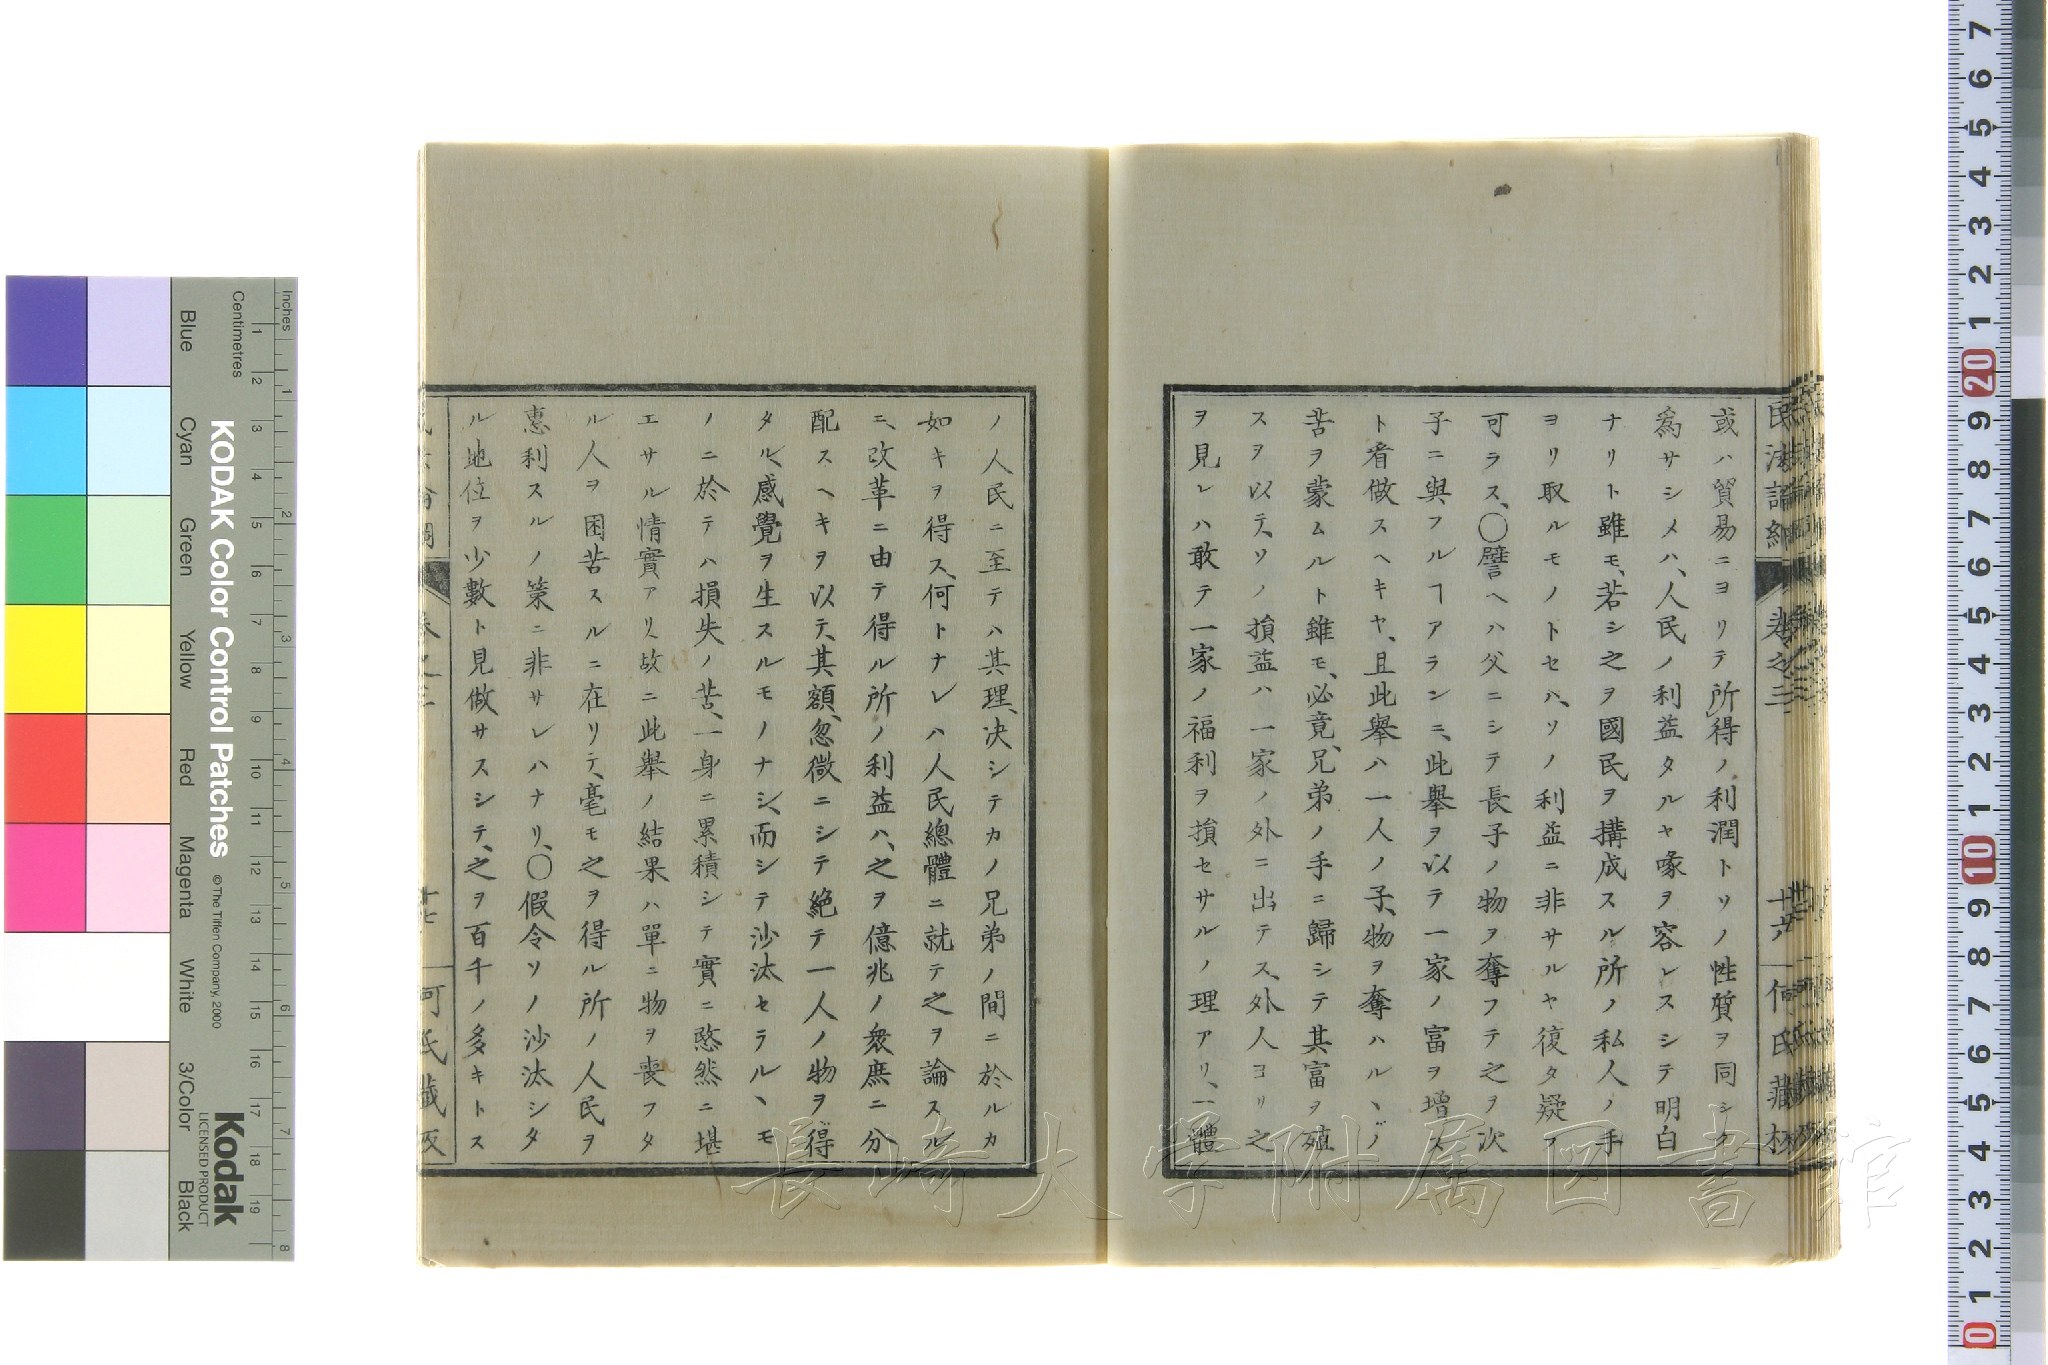 民法論綱 卷之三 十六 何氏藏板
或ハ貿易ニヨリテ所得ノ利潤トソノ性質ヲ同シク
爲サシメハ、人民ノ利益タルヤ喙ヲ容レスシテ明白
ナリト雖モ、若シ之ヲ國民ヲ搆成スル所ノ私人ノ手
ヨリ取ルモノトセハ、ソノ利益ニ非サルヤ復タ疑フ
可ラス、〇譬ヘハ父ニシテ長子ノ物ヲ奪フテ之ヲ次
子ニ與フルヿアランニ、此擧ヲ以テ一家ノ富ヲ增ス
ト看做スヘキヤ、且此擧ハ一人ノ子、物ヲ奪ハルヽノ
苦ヲ蒙ムルト雖モ、必竟、兄弟ノ手ニ歸シテ其富ヲ殖
スヲ以テ、ソノ損益ハ一家ノ外ニ出テス、外人ヨリ之
ヲ見レハ敢テ一家ノ福利ヲ損セサルノ理アリ、一體
ノ人民ニ至テハ其理、決シテカノ兄弟ノ間ニ於ルカ
如キヲ得ス、何トナレハ人民總體ニ就テ之ヲ論スル
ニ、改革ニ由テ得ル所ノ利益ハ、之ヲ億兆ノ衆庶ニ分
配スヘキヲ以テ、其額、忽微ニシテ絶テ一人ノ物ヲ得
タル感覺ヲ生スルモノナシ、而シテ沙汰セラルヽモ
ノニ於テハ損失ノ苦、一身ニ累積シテ實ニ愍然ニ堪
エサル情實アリ、故ニ此擧ノ結果ハ單ニ物ヲ喪フタ
ル人ヲ困苦スルニ在リテ、毫モ之ヲ得ル所ノ人民ヲ
惠利スルノ策ニ非サレハナリ、〇假令ソノ沙汰シタ
ル地位ヲ少數ト見做サスシテ、之ヲ百千ノ多キトス
卷之三 十七 何氏藏板
長崎大学附属図書館
KODAK Color Control Patches
© The Tiffen Company, 2000
Kodak
LICENSED PRODUCT
Inches
Centimetres
Blue
Cyan
Green
Yellow
Red
Magenta
White
3/Color
Black